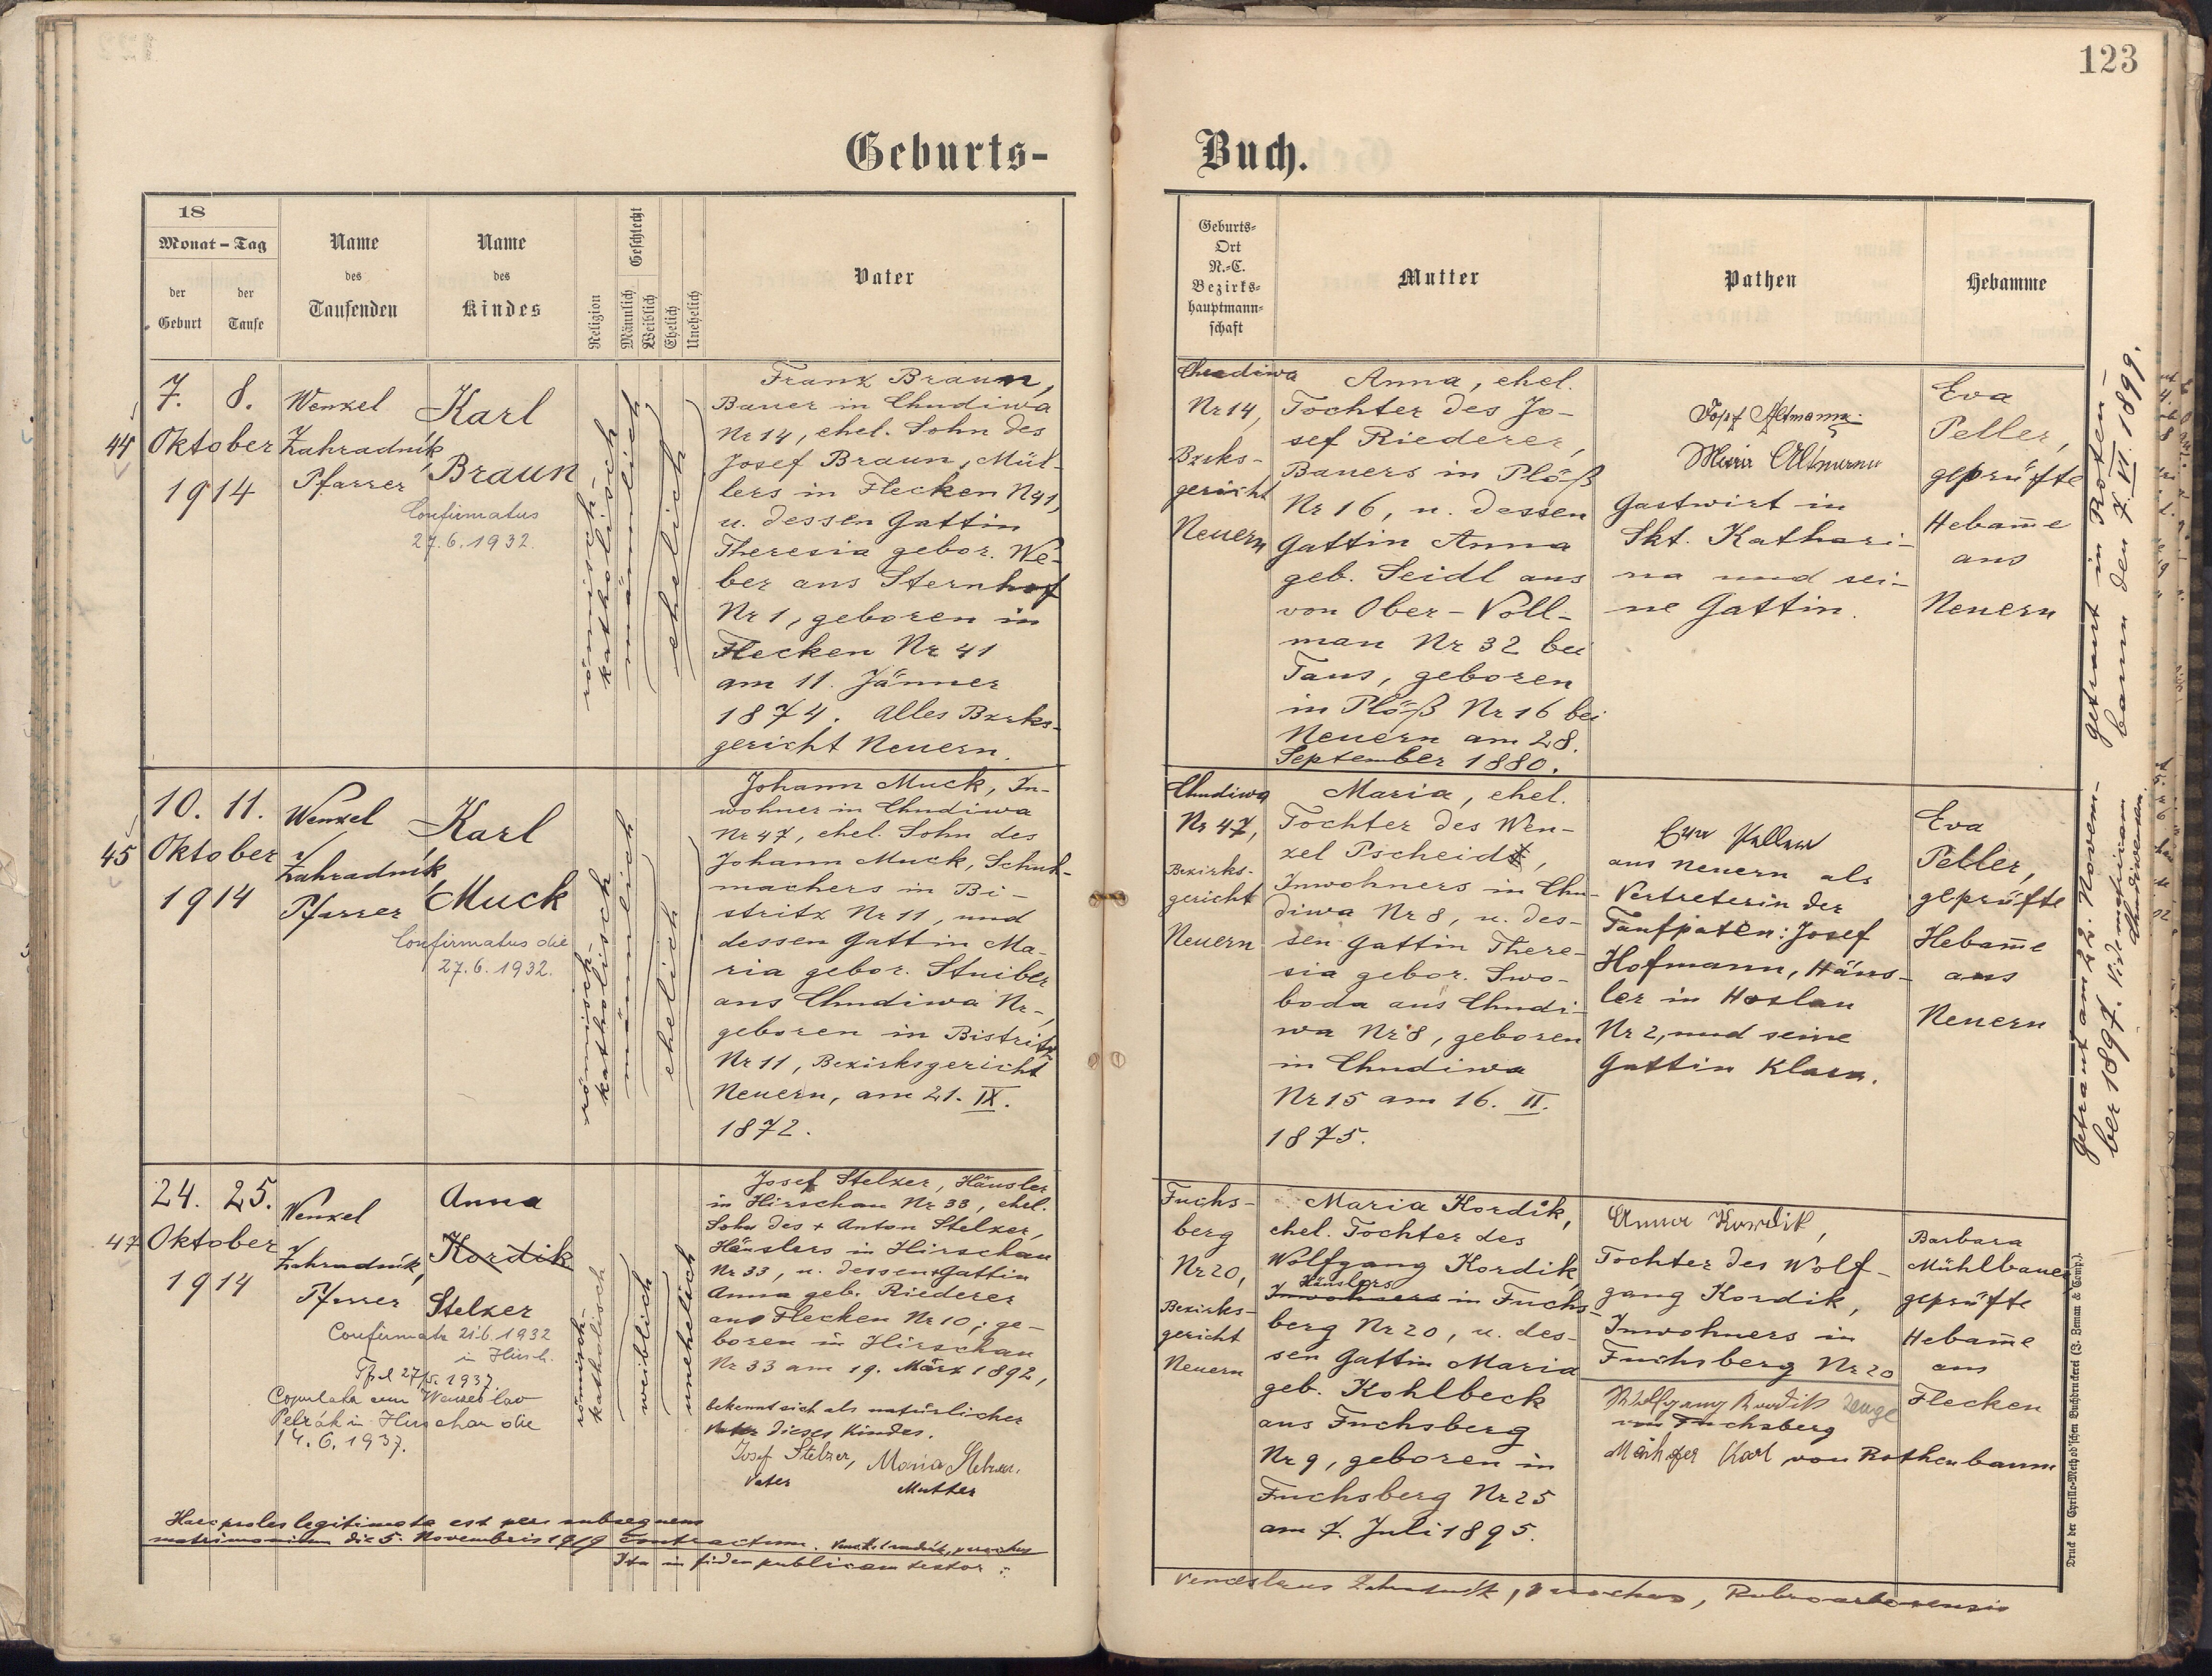 123
Geburts-
Buch.
18
Monat – Tag
der Geburt
der Taufe
Name des Taufenden
Name des Kindes
Religion
Geschlecht
Männlich
Weiblich
Ehelich
Unehelich
Vater
Geburts-
Ort
N.-C.
Bezirks-
hauptmann-
schaft
Mutter
Pathen
Hebamme
44
7. 8.
Oktober
1914
Wenzel
Zahradník,
Pfarrer
Karl
Braun
Confirmatus
27.6.1932.
römisch-
katholisch
männlich
ehelich
Franz Braun,
Bauer in Chudiwa
Nr 14, ehel. Sohn des
Josef Braun, Mül-
lers in Flecken N41,
u. dessen Gattin
Theresia gebor. We-
ber aus Sternhof
Nr 1, geboren in
Flecken Nr 41
am 11. Jänner
1874. Alles Bzrks-
gericht Neuern.
Chudiwa
Nr 14,
Bzrks-
gericht
Neuern
Anna, ehel.
Tochter des Jo-
sef Riederer,
Bauers in Plöß
Nr 16, u. dessen
Gattin Anna
geb. Seidl aus
von Ober-Voll-
man Nr 32 bei
Taus, geboren
in Plöß Nr 16 bei
Neuern am 28.
September 1880.
Josef Altmann
Maria Altmann
Gastwirt in
Skt. Kathari-
na und sei-
ne Gattin.
Eva
Peller,
geprüfte
Hebam̄e
aus
Neuern
getraut in Roten-
baum den 7. VI. 1899.
45
10. 11.
Oktober
1914
Wenzel
Zahradník,
Pfarrer
Karl
Muck
Confirmatus die
27.6.1932.
römisch-
katholisch
männlich
ehelich
Johann Muck, In-
wohner in Chudiwa
Nr 47, ehel. Sohn des
Johann Muck, Schuh-
machers in Bi-
stritz Nr 11, und
dessen Gattin Ma-
ria gebor. Stuiber
aus Chudiwa Nr -,
geboren in Bistritz
Nr 11, Bezirksgericht
Neuern, am 21. IX.
1872.
Chudiwa
Nr 47,
Bezirks-
gericht
Neuern
Maria, ehel.
Tochter des Wen-
zel Pscheidt,
Inwohners in Chu-
diwa Nr 8, u. des-
sen Gattin There-
sia gebor. Swo-
boda aus Chudi-
wa Nr 8, geboren
in Chudiwa
Nr 15 am 16. II.
1875.
Eva Peller
aus Neuern als
Vertreterin der
Taufpaten: Josef
Hofmann, Häus-
ler in Hoslau
Nr 2, und seine
Gattin Klara.
Eva
Peller,
geprüfte
Hebam̄e
aus
Neuern
Getraut am 22. Novem-
ber 1897.
47
24. 25.
Oktober
1914
Wenzel
Zahradník,
Pfarrer
Anna
Kordik
Stelzer
Confirmata 21.6.1932
in Hirsch.
27/5. 1937.
Copulata cum Wenceslao
Pelrák in Hirschau die
14.6.1937.
römisch-
katholisch
weiblich
unehelich
Josef Stelzer, Häusler
in Hirschau Nr 33, ehel.
Sohn des + Anton Stelzer,
Häuslers in Hirschau
Nr 33, u. dessen + Gattin
Anna geb. Riederer
aus Flecken Nr 10; ge-
boren in Hirschau
Nr 33 am 19. März 1892,
bekennt sich als natürlicher
Vater dieses Kindes.
Josef Stelzer, Maria Stelzer.
Vater Mutter
Haec proles legitimata est per subsequens
matrimonium die 5. Novembris 1919 contractum.
Ita in fidem publicam testor:
Fuchs-
berg
Nr 20,
Bezirks-
gericht
Neuern
Maria Kordik,
ehel. Tochter des
Wolfgang Kordik
Häuslers
Inwohners in Fuchs-
berg Nr 20, u. des-
sen Gattin Maria
geb. Kohlbeck
aus Fuchsberg
Nr 9, geboren in
Fuchsberg Nr 25
am 7. Juli 1895.
Anna Kordik,
Tochter des Wolf-
gang Kordik,
Inwohners in
Fuchsberg Nr 20
Wolfgang Kordik Zeuge
von Fuchsberg
Karl von Rothenbaum
Barbara
Mühlbauer
geprüfte
Hebam̄e
aus
Flecken
Venceslaus Zahradník, parochus, Rubroarborensis
Druck der Cyrillo-Method'schen Buchdruckerei (J. Zeman & Comp.).